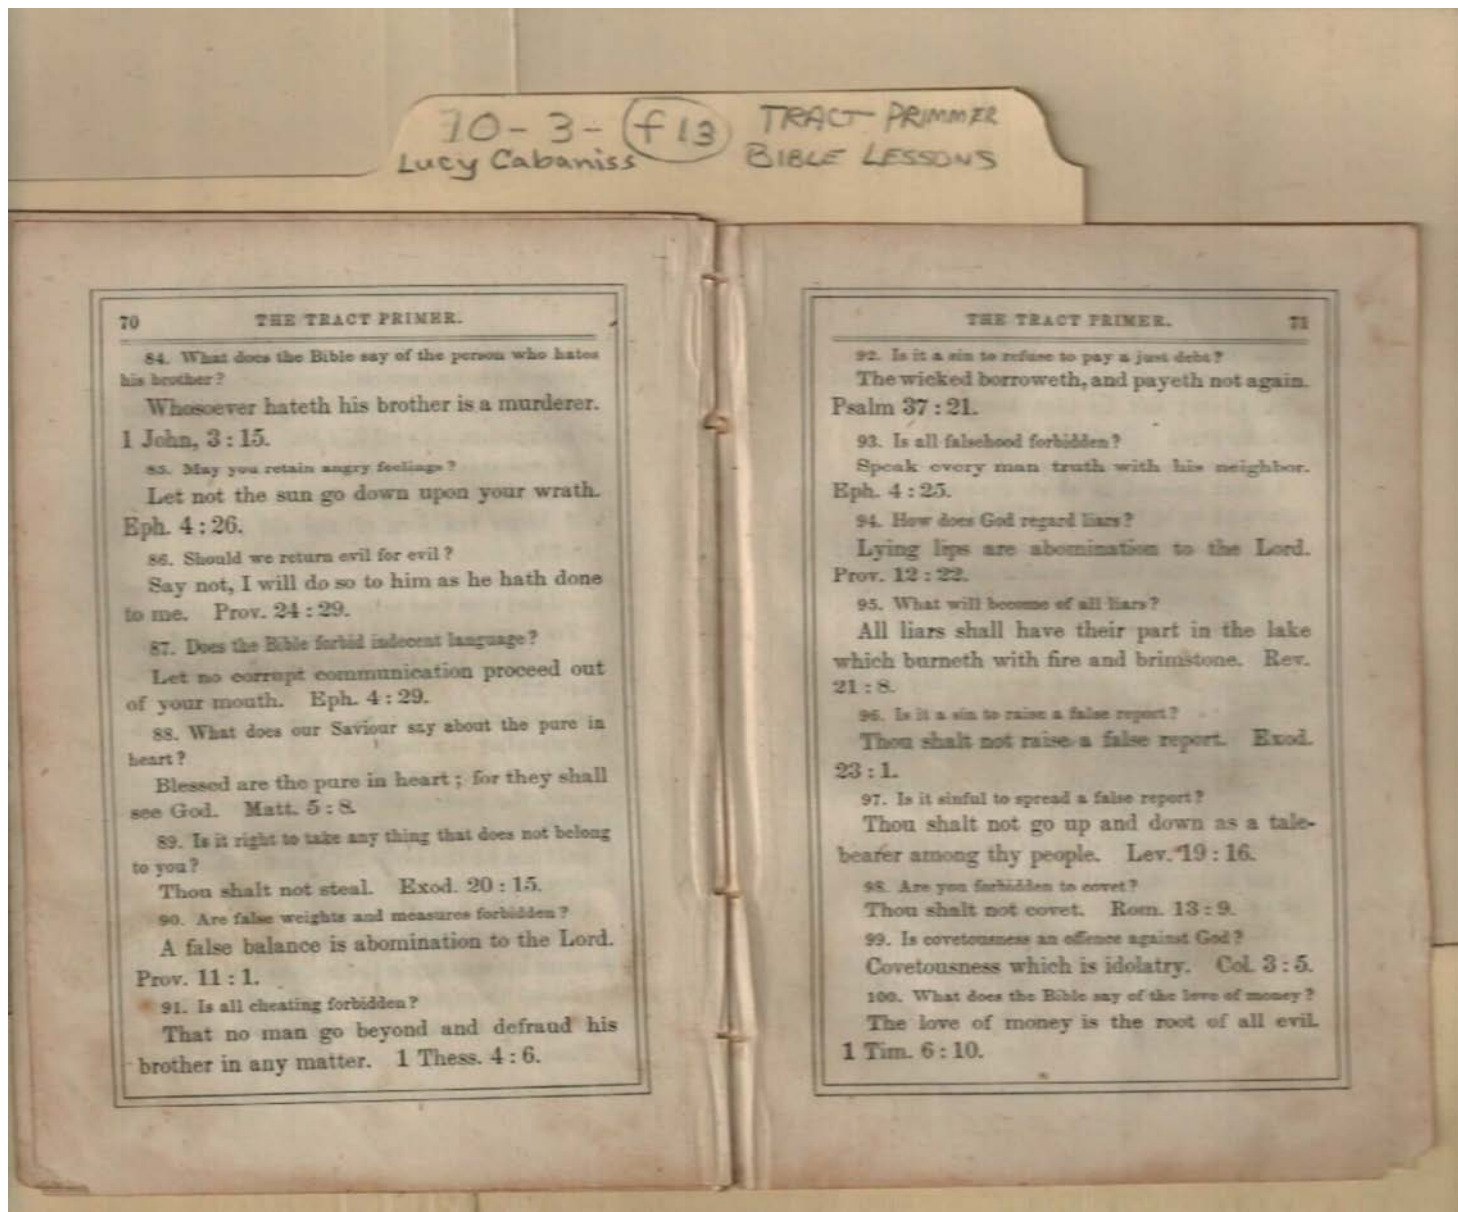 70-3-f13 TRACT PRIMMER
Lucy Cabaniss BIBLE LESSONS
70 THE TRACT PRIMER.
84. What does the Bible say of the person who hates
his brother?
Whosoever hateth his brother is a murderer.
1 John, 3 : 15.
85. May you retain angry feelings?
Let not the sun go down upon your wrath.
Eph. 4 : 26.
86. Should we return evil for evil?
Say not, I will do so to him as he hath done
to me. Prov. 24 : 29.
87. Does the Bible forbid indecent language?
Let no corrupt communication proceed out
of your mouth. Eph. 4 : 29.
88. What does our Saviour say about the pure in
heart?
Blessed are the pure in heart; for they shall
see God. Matt. 5 : 8.
89. Is it right to take any thing that does not belong
to you?
Thou shalt not steal. Exod. 20 : 15.
90. Are false weights and measures forbidden?
A false balance is abomination to the Lord.
Prov. 11 : 1.
91. Is all cheating forbidden?
That no man go beyond and defraud his
brother in any matter. 1 Thess. 4 : 6.
THE TRACT PRIMER. 71
92. Is it a sin to refuse to pay a just debt?
The wicked borroweth, and payeth not again.
Psalm 37 : 21.
93. Is all falsehood forbidden?
Speak every man truth with his neighbor.
Eph. 4 : 25.
94. How does God regard liars?
Lying lips are abomination to the Lord.
Prov. 12 : 22.
95. What will become of all liars?
All liars shall have their part in the lake
which burneth with fire and brimstone. Rev.
21 : 8.
96. Is it a sin to raise a false report?
Thou shalt not raise a false report. Exod.
23 : 1.
97. Is it sinful to spread a false report?
Thou shalt not go up and down as a tale-
bearer among thy people. Lev. 19 : 16.
98. Are you forbidden to covet?
Thou shalt not covet. Rom. 13 : 9.
99. Is covetousness an offence against God?
Covetousness which is idolatry. Col. 3 : 5.
100. What does the Bible say of the love of money?
The love of money is the root of all evil.
1 Tim. 6 : 10.